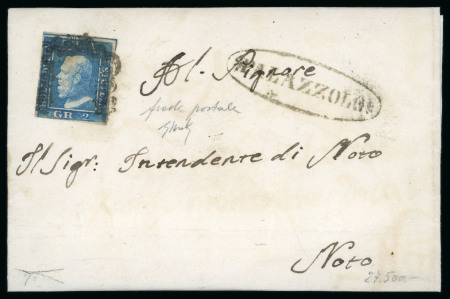 GR 2
Al Signore
PALAZZOLO
frode postale
Il Sigr: Intendente di Noto
Noto
27.500.—